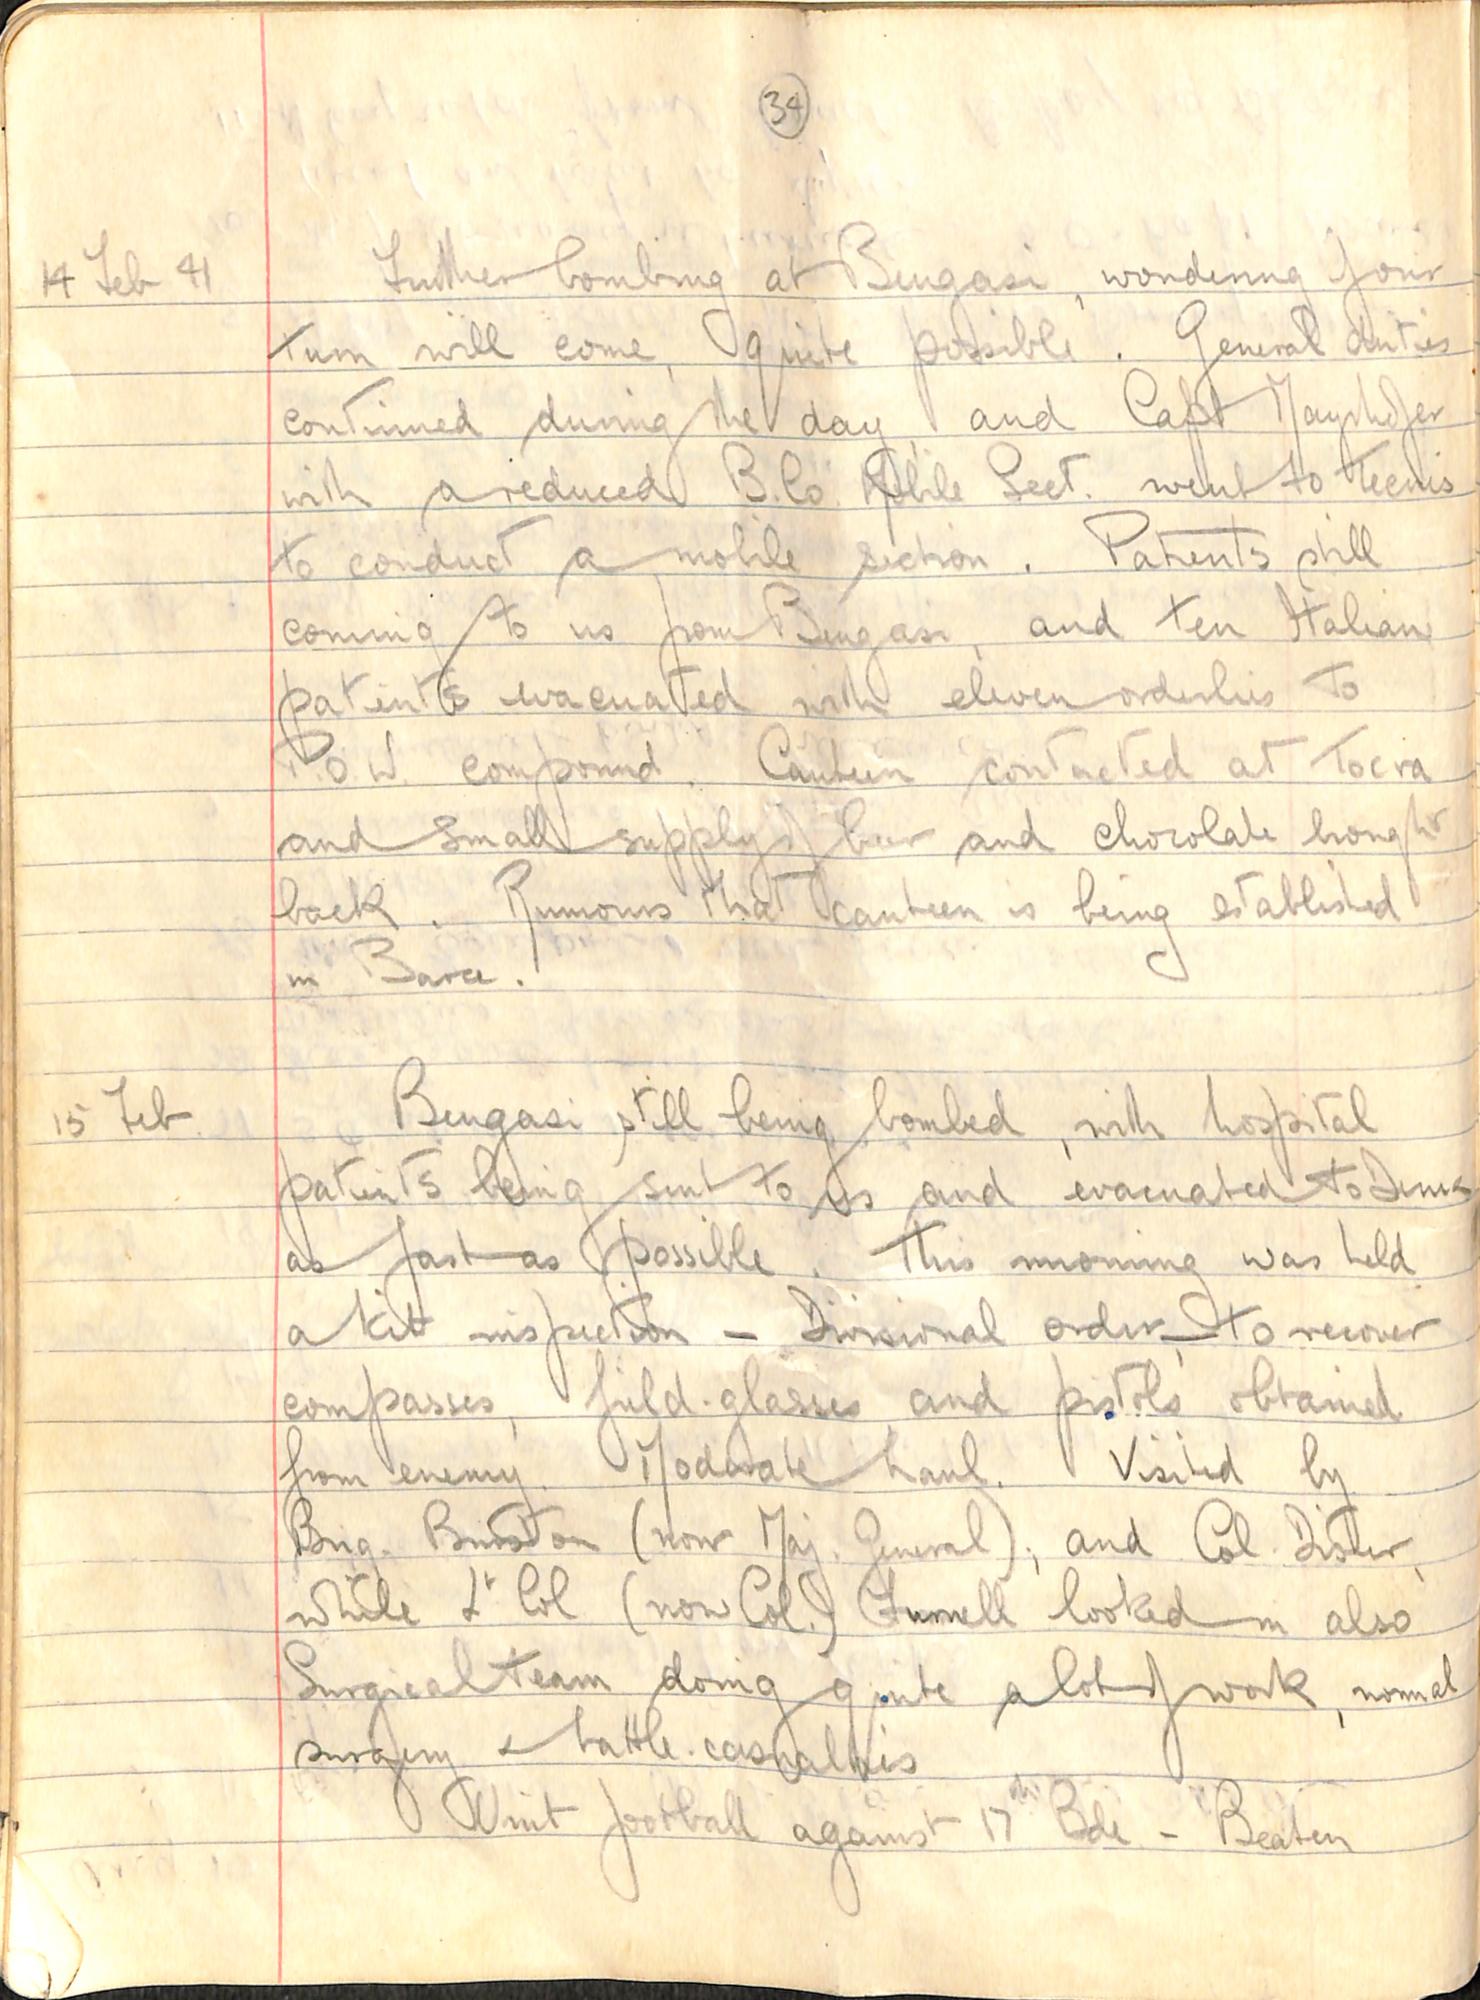 34
14 Feb 41 Further bombing at Bengasi, wondering if our
turn will come, quite possible. General duties
continued during the day, and Capt Mayrhofer
with a reduced B.Co. Mobile Sect. went to Tecnis
to conduct a mobile section. Patients still
coming to us from Bengasi, and ten Italian
patients evacuated with eleven orderlies to
P.O.W. compound. Canteen contacted at Tocra
and small supply of beer and chocolate brought
back. Rumours that canteen is being established
in Barce.
15 Feb Bengasi still being bombed, with hospital
patients being sent to us and evacuated to Derna
as fast as possible. This morning was held
a kit inspection - Divisional order, to recover
compasses, field-glasses and pistols obtained
from enemy. Moderate haul. Visited by
Brig. Burston (now Maj. General); and Col. Disher,
while Lt Col (now Col.) Furnell looked in also
Surgical team doing quite a lot of work, normal
surgery & battle-casualties
Unit football against 17th Bde - Beaten